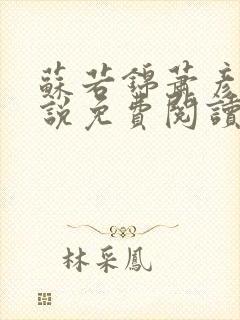 蘇若錦蕭彥
說免費閱讀
林采鳳